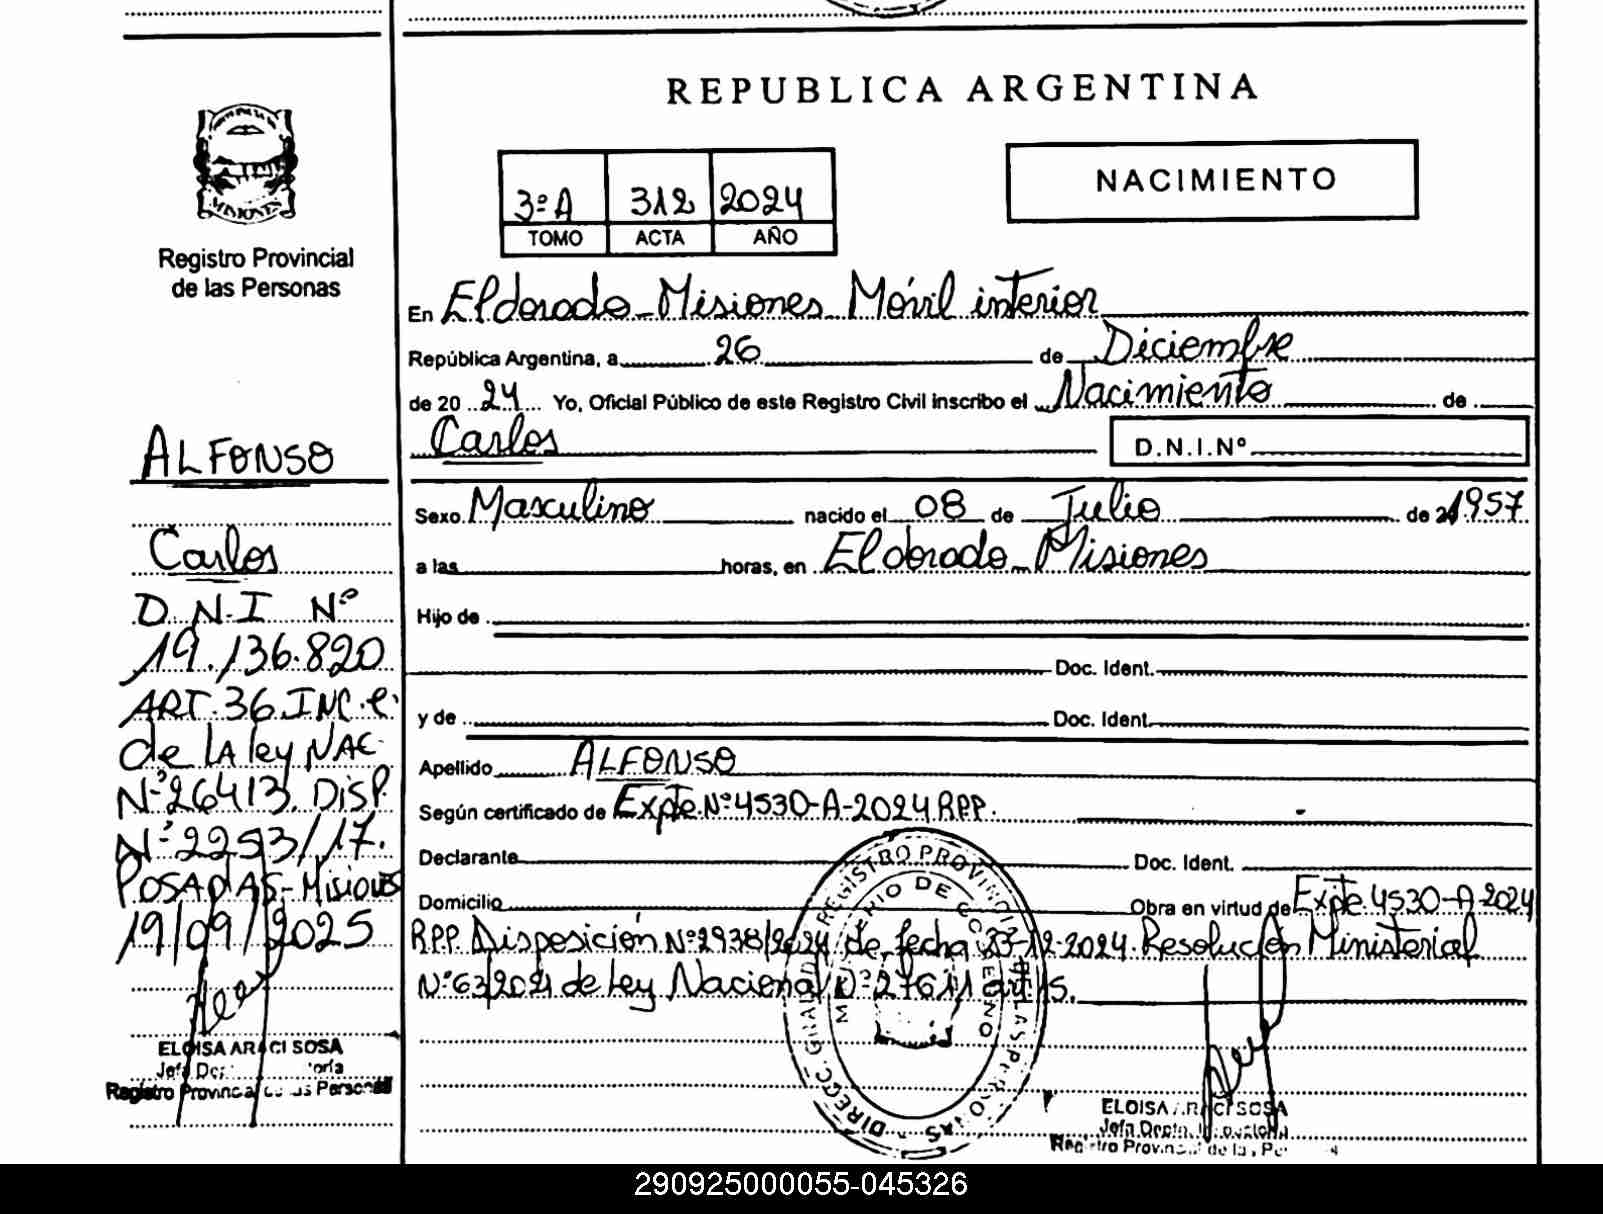 REPUBLICA ARGENTINA
MISIONES
Registro Provincial
de las Personas
3ºA 312 2024
TOMO ACTA AÑO
NACIMIENTO
En Eldorado - Misiones Móvil interior
República Argentina, a 26 de Diciembre
de 20 24 Yo, Oficial Público de este Registro Civil inscribo el Nacimiento de
Carlos
D.N.I.Nº
Sexo Masculino nacido el 08 de Julio de 1957
a las horas, en Eldorado - Misiones
Hijo de
Doc. Ident.
y de Doc. Ident.
Apellido ALFONSO
Según certificado de Expte. Nº 4530-A-2024 RPP.
Declarante Doc. Ident.
Domicilio Obra en virtud de Expte 4530-A-2024
RPP. Disposición Nº 2938/2024 de fecha 23-12-2024. Resolución Ministerial
Nº 63/2021 de Ley Nacional Nº 27611 art 15.
ALFONSO
Carlos
D.N.I Nº
19.136.820
ART. 36 INC. C.
de LA ley NAC
Nº 26413. DISP.
Nº 2253/17.
POSADAS - Misiones
19/09/2025
ELOISA ARACI SOSA
Registro Provincial de las Personas
DIRECC. GRAL. DE REGISTRO PROVINCIAL DE LAS PERSONAS
MINISTERIO DE GOBIERNO
ELOISA ARACI SOSA
Registro Provincial de las
290925000055-045326